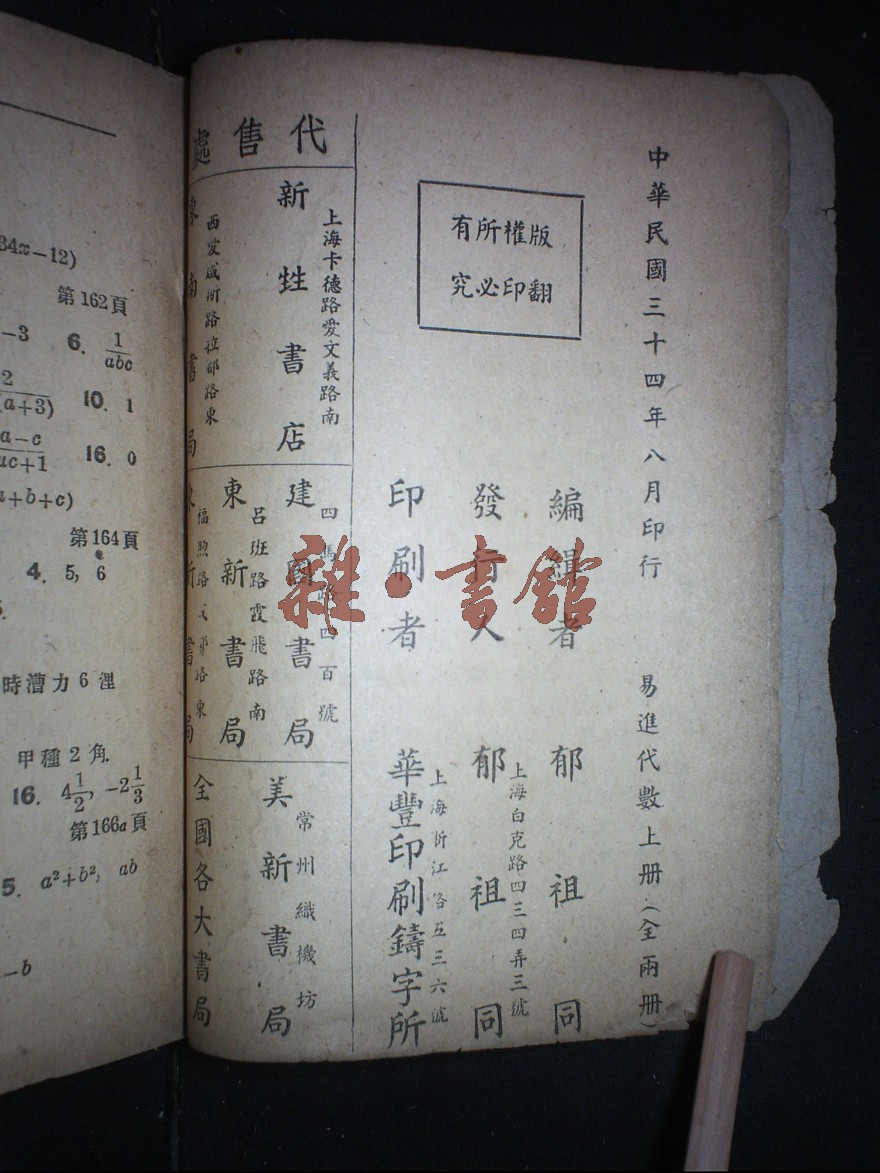 中華民國三十四年八月印行
易進代數上册（全兩册）
版權所有
翻印必究
編緝者 郁祖同
發行人 郁祖同
上海白克路四三四弄三號
印刷者 華豐印刷鑄字所
上海浙江路五三六號
代售處
上海卡德路愛文義路南
新甡書店
西愛咸斯路拉都路東
南書局
四馬路四百號
建國書局
呂班路霞飛路南
東新書局
福煦路
東新書局
常州織機坊
美新書局
全國各大書局
雜·書館
34x−12)
第162頁
−3 6. 1/abc
2/(a+3) 10. 1
a−c/ac+1 16. 0
a+b+c)
第164頁
4. 5, 6
時漕力6浬
甲種2角
16. 4 1/2, −2 1/3
第166a頁
5. a²+b², ab
−b